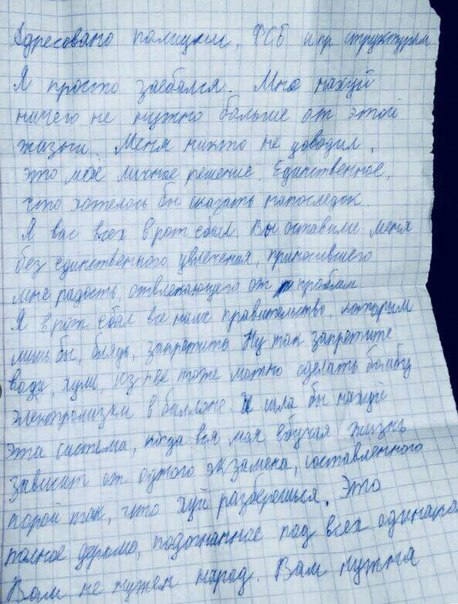 Адресовано полиции, ФСБ и пр структурам
Я просто заебался. Мне нахуй
ничего не нужно больше от этой
жизни. Меня никто не доводил,
это моё личное решение. Единственное,
что хотелось бы сказать напоследок.
Я вас всех в рот ебал. Вы оставили меня
без единственного увлечения, приносившего
мне радость отвлекающего от проблем
Я в рот ебал все наше правительство которым
лишь бы, блядь, запретить Ну так запретите
воду, хули, из нее тоже можно сделать бомбу
электролизом в баллоне. И шла бы нахуй
эта система, когда вся моя ебучая жизнь
зависит от одного экзамена, составленного
порой так, что хуй разберешься. Это
полное дерьмо, подогнанное под всех
Вам не нужен народ. Вам нужна